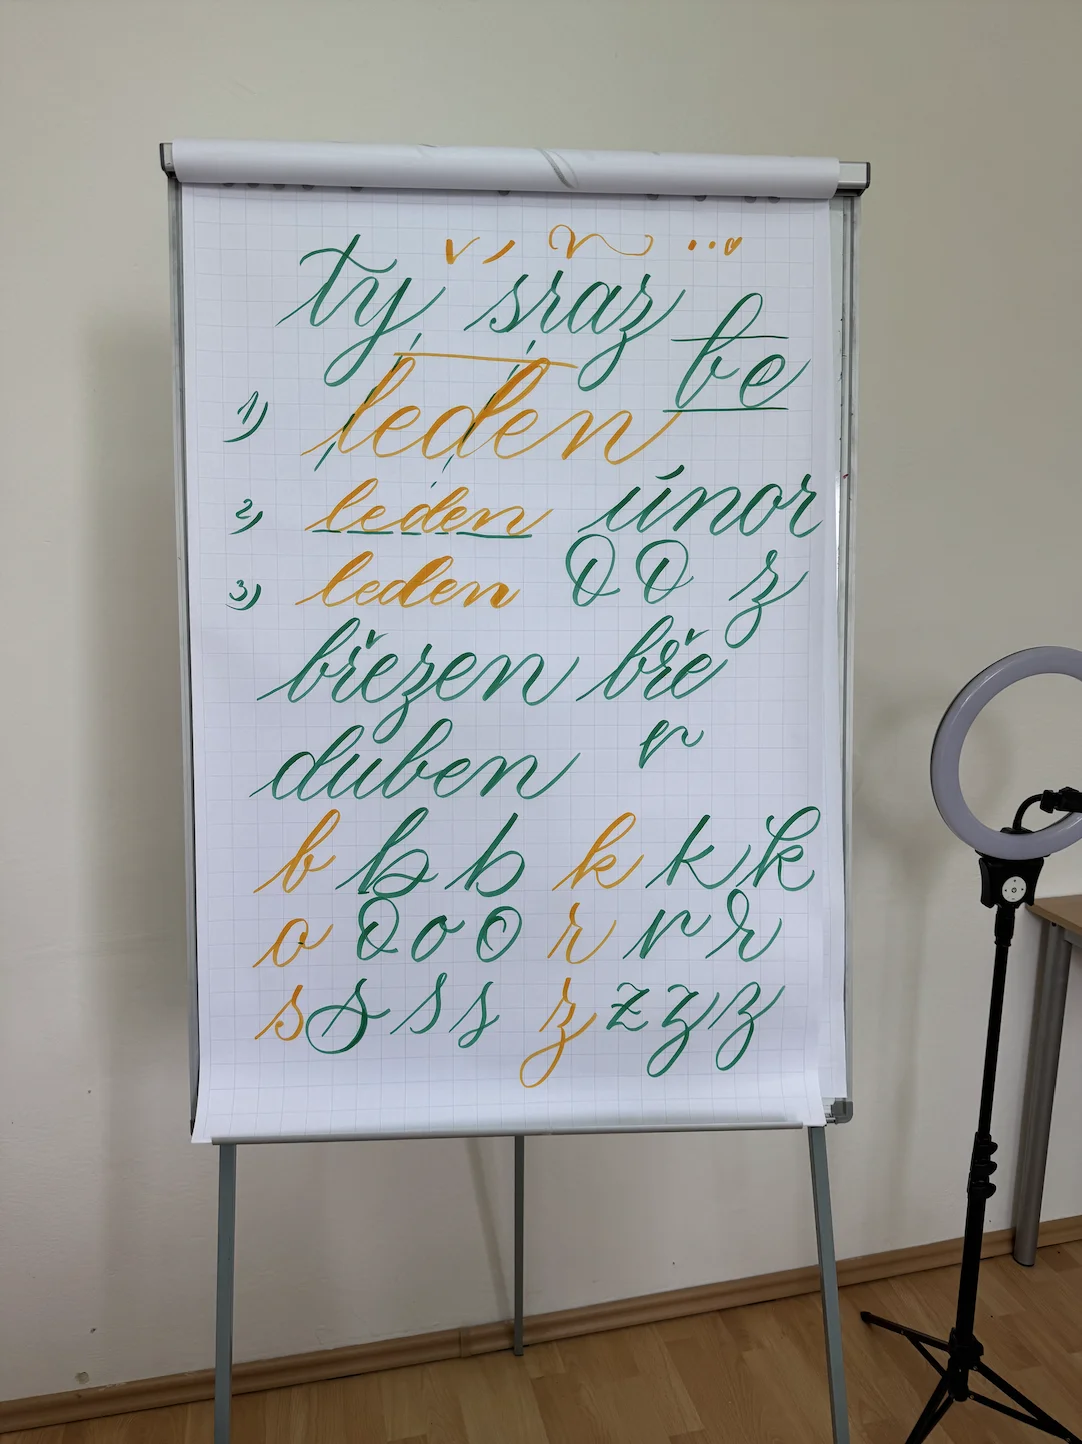 ty sraz be
1) leden
2) leden únor
3) leden O O z
březen bře
r
duben
b b b k k k
o o o o r r r
s s s s z z z z